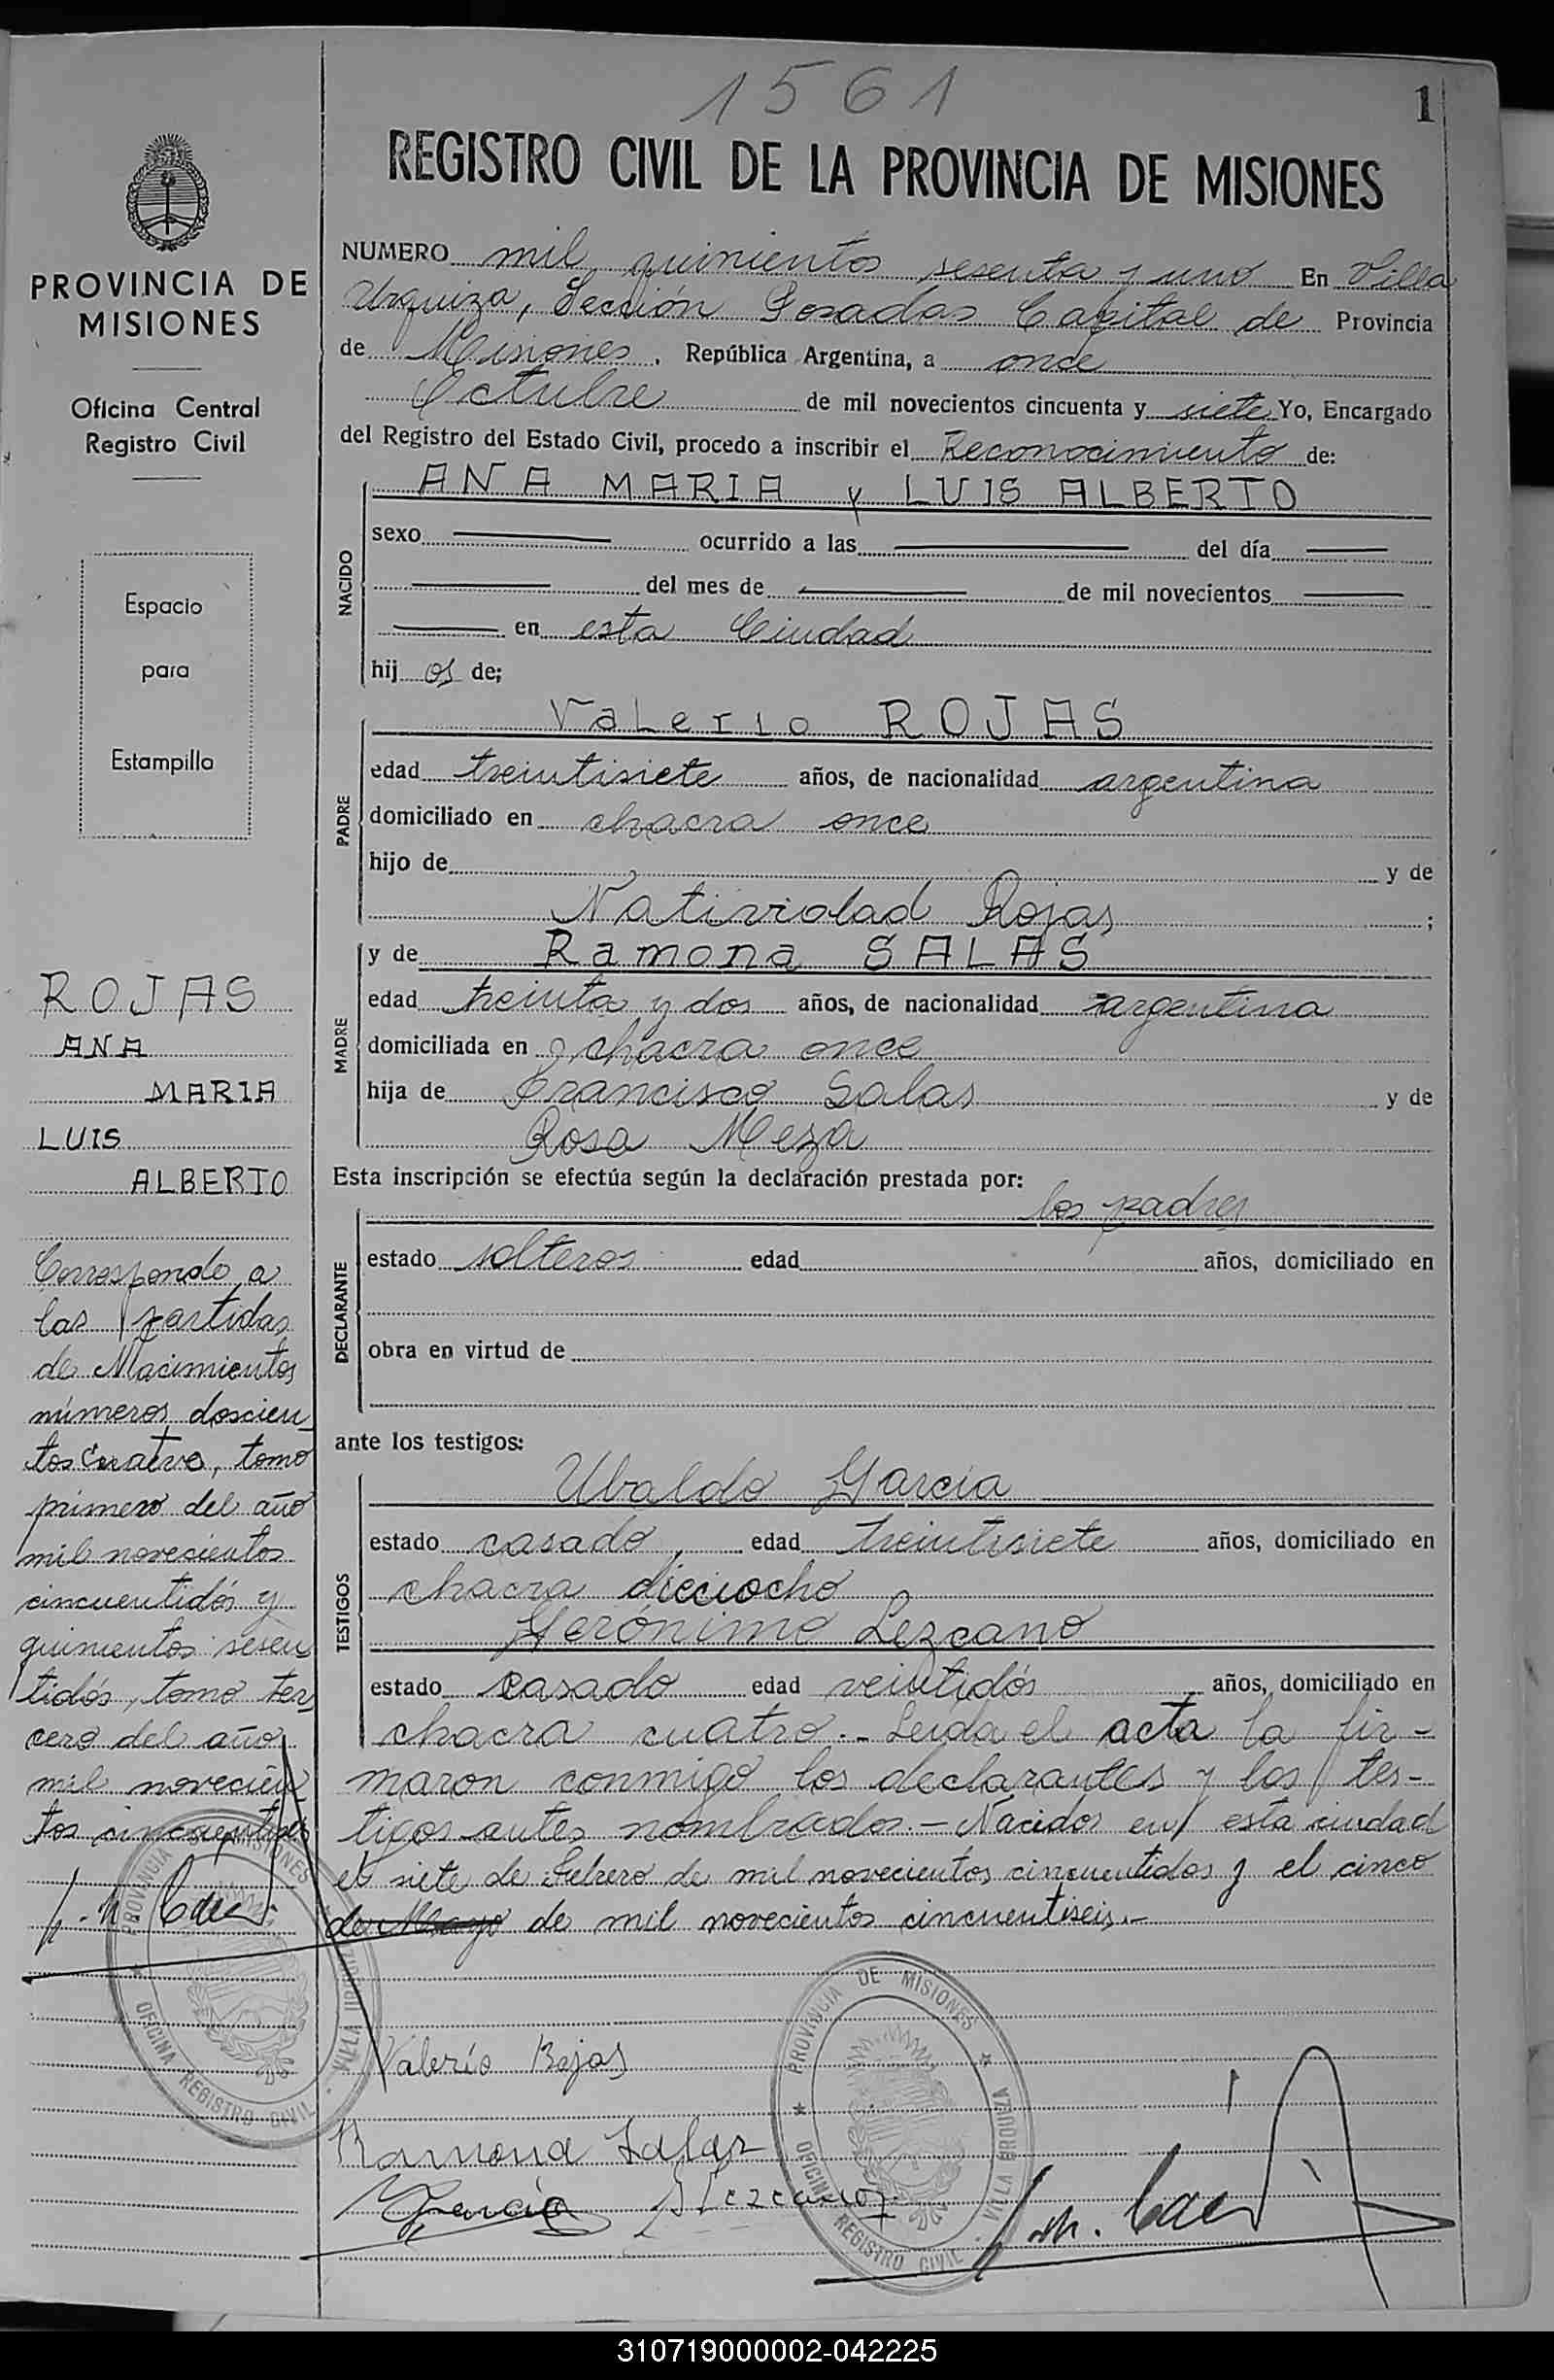 1561
1
REGISTRO CIVIL DE LA PROVINCIA DE MISIONES
PROVINCIA DE
MISIONES
Oficina Central
Registro Civil
Espacio
para
Estampilla
ROJAS
ANA
MARIA
LUIS
ALBERTO
Corresponde a
las partidas
de Nacimientos
números doscien
tos cuatro, tomo
primero del año
mil novecientos
cincuentidós y
quinientos sesen
tidós, tomo ter
cero del año
mil novecien
tos
NUMERO mil quinientos sesenta y uno En Villa
Urquiza, Sección Posadas Capital de Provincia
de Misiones. República Argentina, a once
Octubre de mil novecientos cincuenta y siete Yo, Encargado
del Registro del Estado Civil, procedo a inscribir el Reconocimiento de:
NACIDO
ANA MARIA y LUIS ALBERTO
sexo ocurrido a las del día
del mes de de mil novecientos
en esta Ciudad
hijos de;
PADRE
Valerio ROJAS
edad treintisiete años, de nacionalidad argentina
domiciliado en chacra once
hijo de y de
Natividad Rojas ;
MADRE
y de Ramona SALAS
edad treinta y dos años, de nacionalidad argentina
domiciliada en chacra once
hija de Francisco Salas y de
Rosa Meza
Esta inscripción se efectúa según la declaración prestada por:
DECLARANTE
los padres
estado solteros edad años, domiciliado en
obra en virtud de
ante los testigos:
TESTIGOS
Ubaldo Garcia
estado casado, edad treintisiete años, domiciliado en
chacra dieciocho
Gerónimo Lezcano
estado casado edad veintidós años, domiciliado en
chacra cuatro.- Leída el acta la fir-
maron conmigo los declarantes y los tes-
tigos antes nombrados.- Nacidos en esta ciudad
el siete de Febrero de mil novecientos cincuentidos y el cinco
de Mayo de mil novecientos cincuentiseis.-
PROVINCIA DE MISIONES
OFICINA REGISTRO CIVIL - VILLA URQUIZA
Valerio Rojas
Ramona Salas
Garcia Lezcano
PROVINCIA DE MISIONES
OFICINA REGISTRO CIVIL - VILLA URQUIZA
310719000002-042225